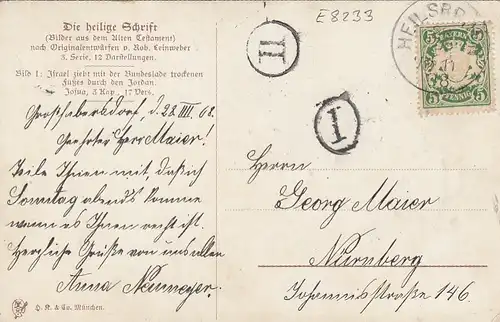 Die heilige Schrift
(Bilder aus dem Alten Testament)
nach Originalentwürfen v. Rob. Leinweber
3. Serie, 12 Darstellungen.
Bild 1: Israel zieht mit der Bundeslade trockenen
Fußes durch den Jordan.
Josua, 3 Kap., 17 Vers.
Großhabersdorf d. 28. 08.
Geehrter Herr Maier!
Teile Ihnen mit, daß ich
Sonntag abends komme
wenn es Ihnen recht ist.
Herzliche Grüße von uns allen
Anna Neumeyer.
H. K. & Co. München.
E8233
II
I
HEILSBR
BAYERN
5 5
PFENNIG
Herrn
Georg Maier
Nürnberg
Johannisstraße 146